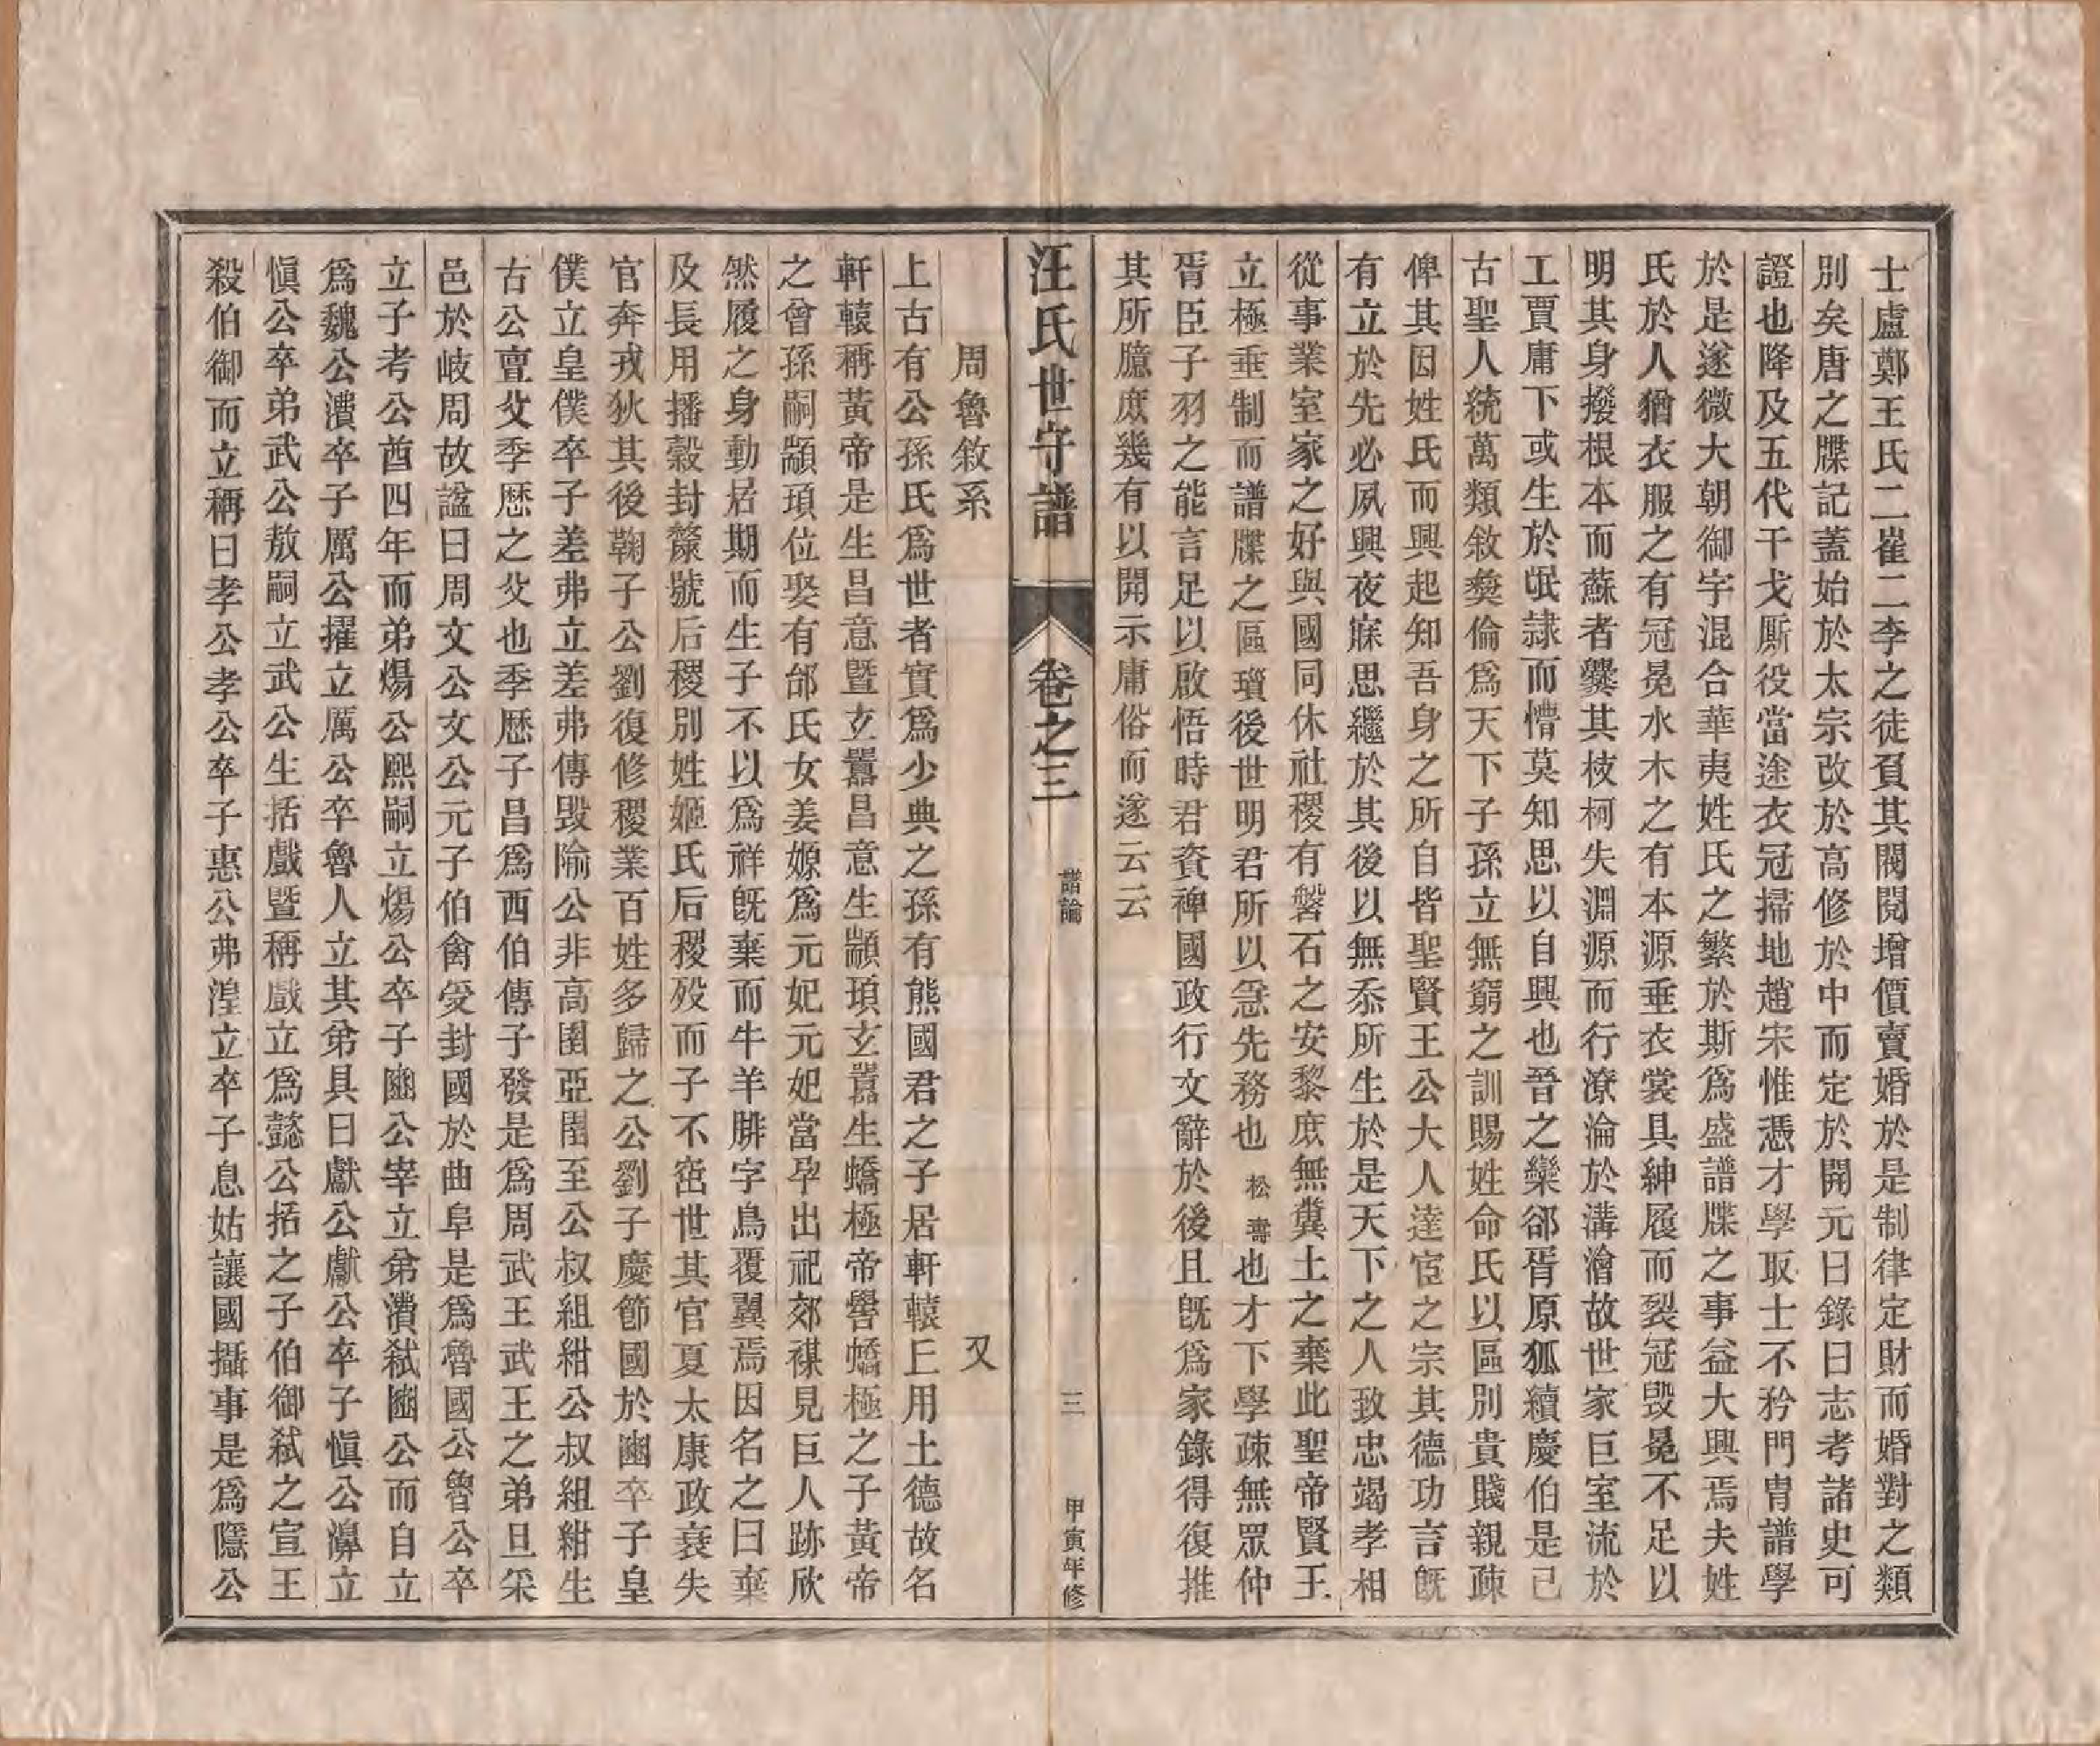 士盧鄭王氏二崔二李之徒頁其閥閱增價賣婚於是制律定財而婚對之類
別矣唐之牒記蓋始於太宗改於高修於中而定於開元曰錄曰志考諸史可
證也降及五代干戈厮役當途衣冠掃地趙宋惟憑才學取士不矜門胄譜學
於是遂微大朝御宇混合華夷姓氏之繁於斯爲盛譜牒之事益大興焉夫姓
氏於人猶衣服之有冠冕水木之有本源垂衣裳具紳履而裂冠毀冕不足以
明其身撥根本而蘇者爨其枝柯失淵源而行潦淪於溝澮故世家巨室流於
工賈庸下或生於氓隷而懵莫知思以自興也晉之欒郤胥原狐續慶伯是已
古聖人統萬類敘彝倫爲天下子孫立無窮之訓賜姓命氏以區別貴賤親疎
俾其因姓氏而興起知吾身之所自皆聖賢王公大人達宦之宗其德功言旣
有立於先必夙興夜寐思繼於其後以無忝所生於是天下之人致忠竭孝相
從事業室家之好與國同休社稷有磐石之安黎庶無糞土之棄此聖帝賢王
立極垂制而譜牒之區瓊後世明君所以急先務也松壽也才下學疎無眾仲
胥臣子羽之能言足以啟悟時君資裨國政行文辭於後且旣爲家錄得復推
其所臆庶幾有以開示庸俗而遂云云
汪氏世守譜 卷之三 譜論 三 甲寅年修
周魯敘系 又
上古有公孫氏爲世者實爲少典之孫有熊國君之子居軒轅丘用土德故名
軒轅稱黃帝是生昌意暨玄囂昌意生顓頊玄囂生蟜極帝嚳蟜極之子黃帝
之曾孫嗣顓頊位娶有邰氏女姜嫄爲元妃元妃當孕出祀郊禖見巨人跡欣
然履之身動居期而生子不以爲祥旣棄而牛羊腓字鳥覆翼焉因名之曰棄
及長用播穀封斄號后稷別姓姬氏后稷歿而子不窋世其官夏太康政衰失
官奔戎狄其後鞠子公劉復修稷業百姓多歸之公劉子慶節國於豳卒子皇
僕立皇僕卒子差弗立差弗傳毀隃公非高圉亞圉至公叔組紺公叔組紺生
古公亶父季歷之父也季歷子昌爲西伯傳子發是爲周武王武王之弟旦采
邑於岐周故諡曰周文公文公元子伯禽受封國於曲阜是爲魯國公魯公卒
立子考公酋四年而弟煬公熙嗣立煬公卒子豳公宰立弟潰弒豳公而自立
爲魏公潰卒子厲公擢立厲公卒魯人立其弟具曰獻公獻公卒子愼公濞立
愼公卒弟武公敖嗣立武公生括戲暨稱戲立爲懿公括之子伯御弒之宣王
殺伯御而立稱曰孝公孝公卒子惠公弗湟立卒子息姑讓國攝事是爲隱公